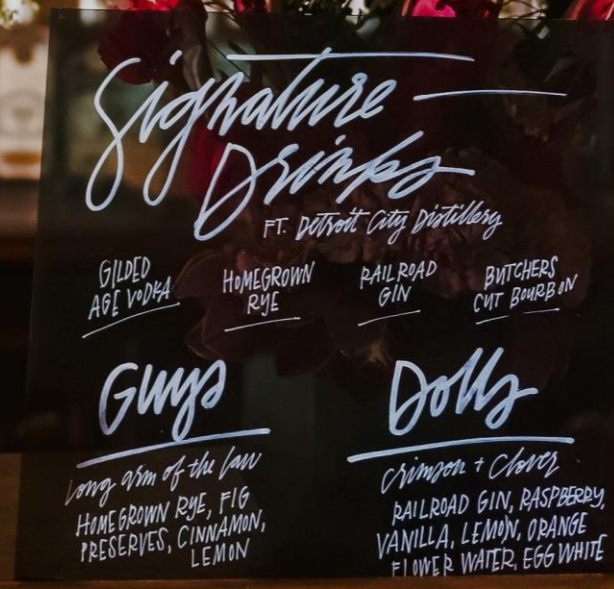 Signature
Drinks
FT. Detroit City Distillery
GILDED
AGE VODKA
HOMEGROWN
RYE
RAILROAD
GIN
BUTCHERS
CUT BOURBON
Guys
long arm of the law
HOMEGROWN RYE, FIG
PRESERVES, CINNAMON,
LEMON
Dolls
crimson + clover
RAILROAD GIN, RASPBERRY,
VANILLA, LEMON, ORANGE
FLOWER WATER, EGG WHITE